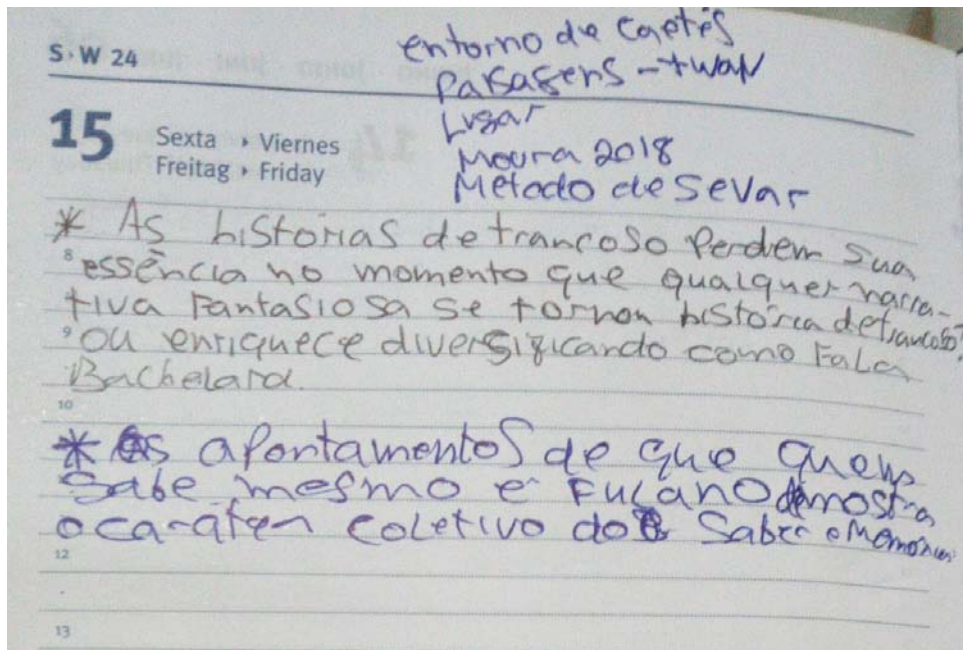 S·W 24
entorno de Caetés
Paisagens - tuan
Lugar
Moura 2018
Método de Sevar
15
Sexta › Viernes
Freitag › Friday
* As historias de trancoso Perdem sua
8
essência no momento que qualquer narra-
tiva Fantasiosa se tornon história de trancoso?
9
ou enriquece diversificando como Fala
Bachelard.
10
* Os apontamentos de que quem
sabe mesmo e Fulano demostra
o caráter coletivo do Saber e Memórias
12
13